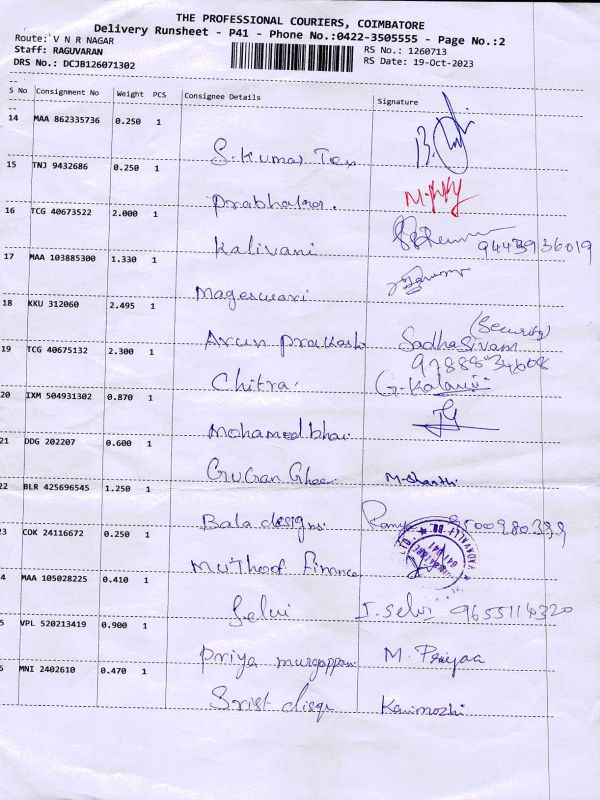 THE PROFESSIONAL COURIERS, COIMBATORE
Delivery Runsheet - P41 - Phone No.:0422-3505555 - Page No.:2
Route: V N R NAGAR
RS No.: 1260713
Staff: RAGUVARAN
RS Date: 19-Oct-2023
DRS No.: DCJB126071302
S No Consignment No Weight PCS Consignee Details Signature
14 MAA 862335736 0.250 1
S. Kumar Tex
15 TNJ 9432686 0.250 1
Prabhakar.
16 TCG 40673522 2.000 1
Kalivani 9443936019
17 MAA 103885300 1.330 1
Mageswari
18 KKU 312060 2.495 1
Arun prakash Sadhasivam (Security)
19 TCG 40675132 2.300 1
Chitra. G. Kalarii
20 IXM 504931302 0.870 1
Mohamed bhai
21 DDG 202207 0.600 1
GuGan Ghee M-Shanthi
22 BLR 425696545 1.250 1
Bala designs Ramya
23 COK 24116672 0.250 1
Muthoot Finance
4 MAA 105028225 0.410 1
Selvi I. Selvi 9655114320
5 VPL 520213419 0.900 1
Priya murgappan M. Priyaa
6 MNI 2402610 0.470 1
Srist Kanimozhi